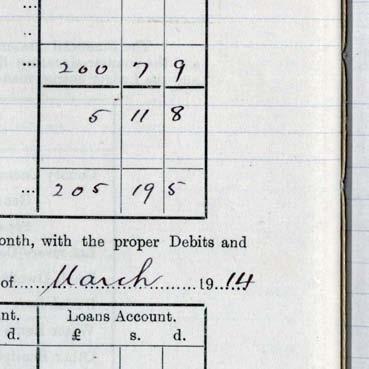 ... 200 7 9
5 11 8
... 205 19 5
onth, with the proper Debits and
of......March......19..14
nt. Loans Account.
d. £ s. d.